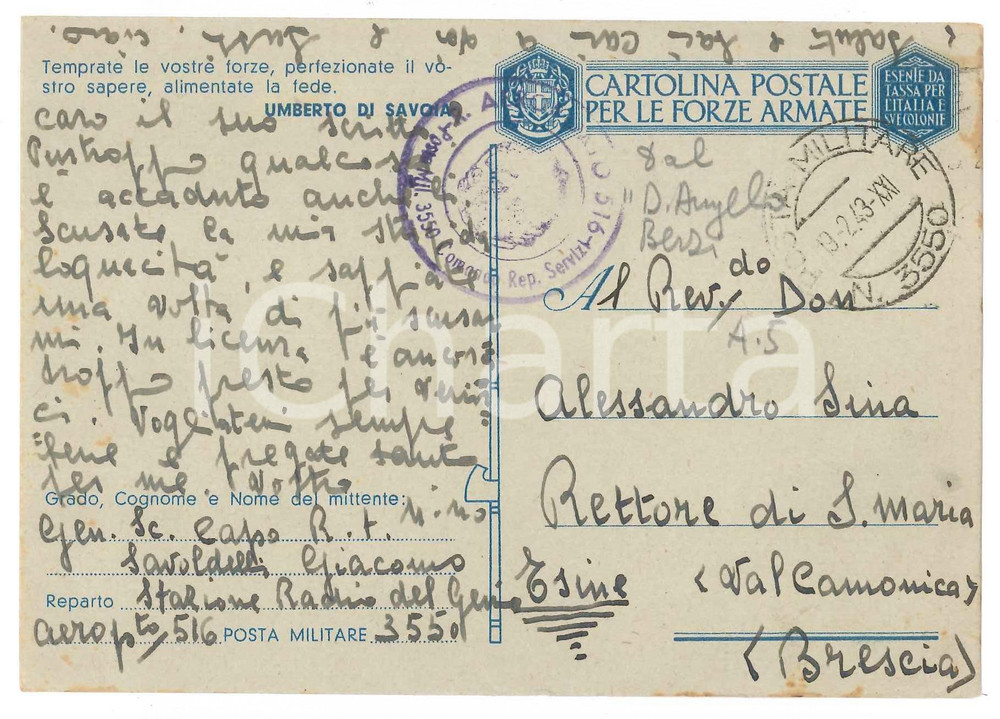 i saluti e baci cari a voi e
Temprate le vostre forze, perfezionate il vo-
stro sapere, alimentate la fede.
UMBERTO DI SAVOIA
CARTOLINA POSTALE
PER LE FORZE ARMATE
ESENTE DA
TASSA PER
L'ITALIA E
SUE COLONIE
caro il suo scritto.
Purtroppo qualcosa
è accaduto anche
Scusate la mia
loquacità e sappiate
una volta di più scusar
mi. In licenza è ancora
troppo presto per venir
ci. Vogliatemi sempre
bene e pregate tanto
per me. Vostro
Nino
Grado, Cognome e Nome del mittente:
Gen. Sc. Capo R.t.
Savoldelli Giacomo
Reparto Stazione Radio del Genio
Aerop.to 516 POSTA MILITARE 3550
Mil. 3550 Comando Rep. Servizi
516
POSTA MILITARE
19-2-43-XXI
N. 3550
dal
"D. Angelo
Berzi
Al Rev.do Don
A.5
Alessandro Sina
Rettore di S. Maria
Esine (Val Camonica)
(Brescia)
iCharta